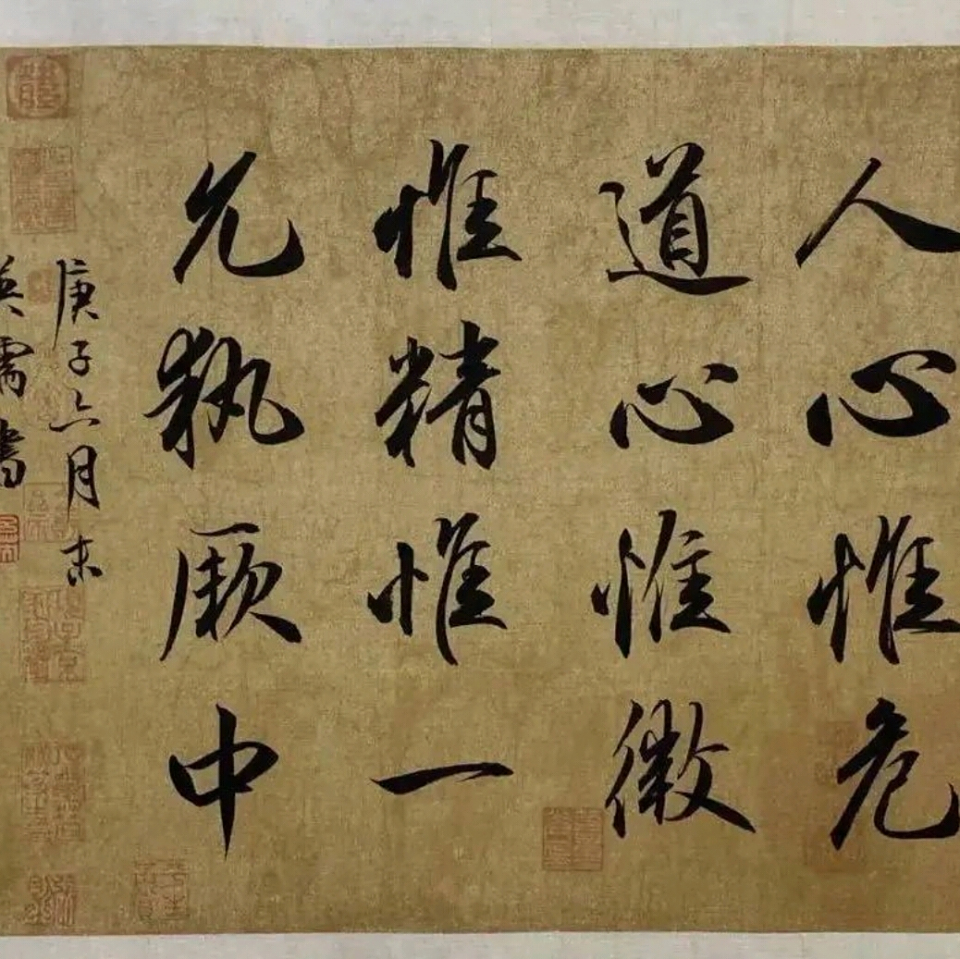 人心惟危
道心惟微
惟精惟一
允执厥中
庚子六月末
吴霭书